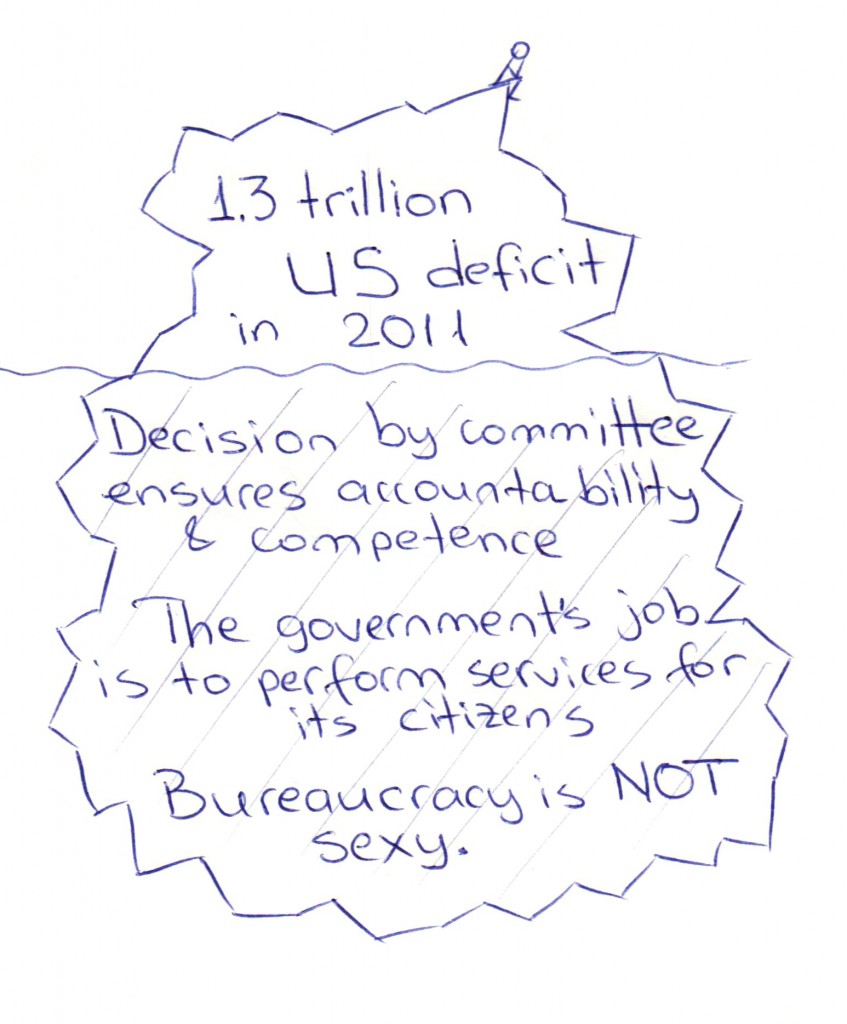 1.3 trillion
US deficit
in 2011
Decision by committee
ensures accountability
& competence
The government's job
is to perform services for
its citizens
Bureaucracy is NOT
sexy.